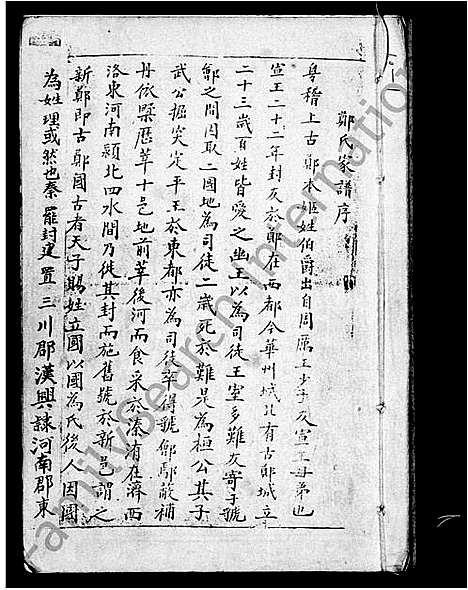 鄭氏家譜序
粤稽上古鄭本姬姓伯爵出自周厲王少子友宣王母弟也
宣王二十二年封友於鄭在西都今華州城北有古鄭城立
二十三歲百姓皆愛之幽王以為司徒王室多難友寄子號
鄶之間因取二國地為司徒二歲死於難是為桓公其子
武公掘突定平王於東都亦為司徒卒得號鄶鄢蔽補
丹依㽥歷莘十邑地前莘後河而食采於溱洧在濟西
洛東河南潁北四水間乃徙其封而施舊號於新邑謂之
新鄭即古鄭國古者天子賜姓立國以國為氏後人因國
為姓理或然也秦罷封建置三川郡漢興隸河南郡東
FamilySearch International